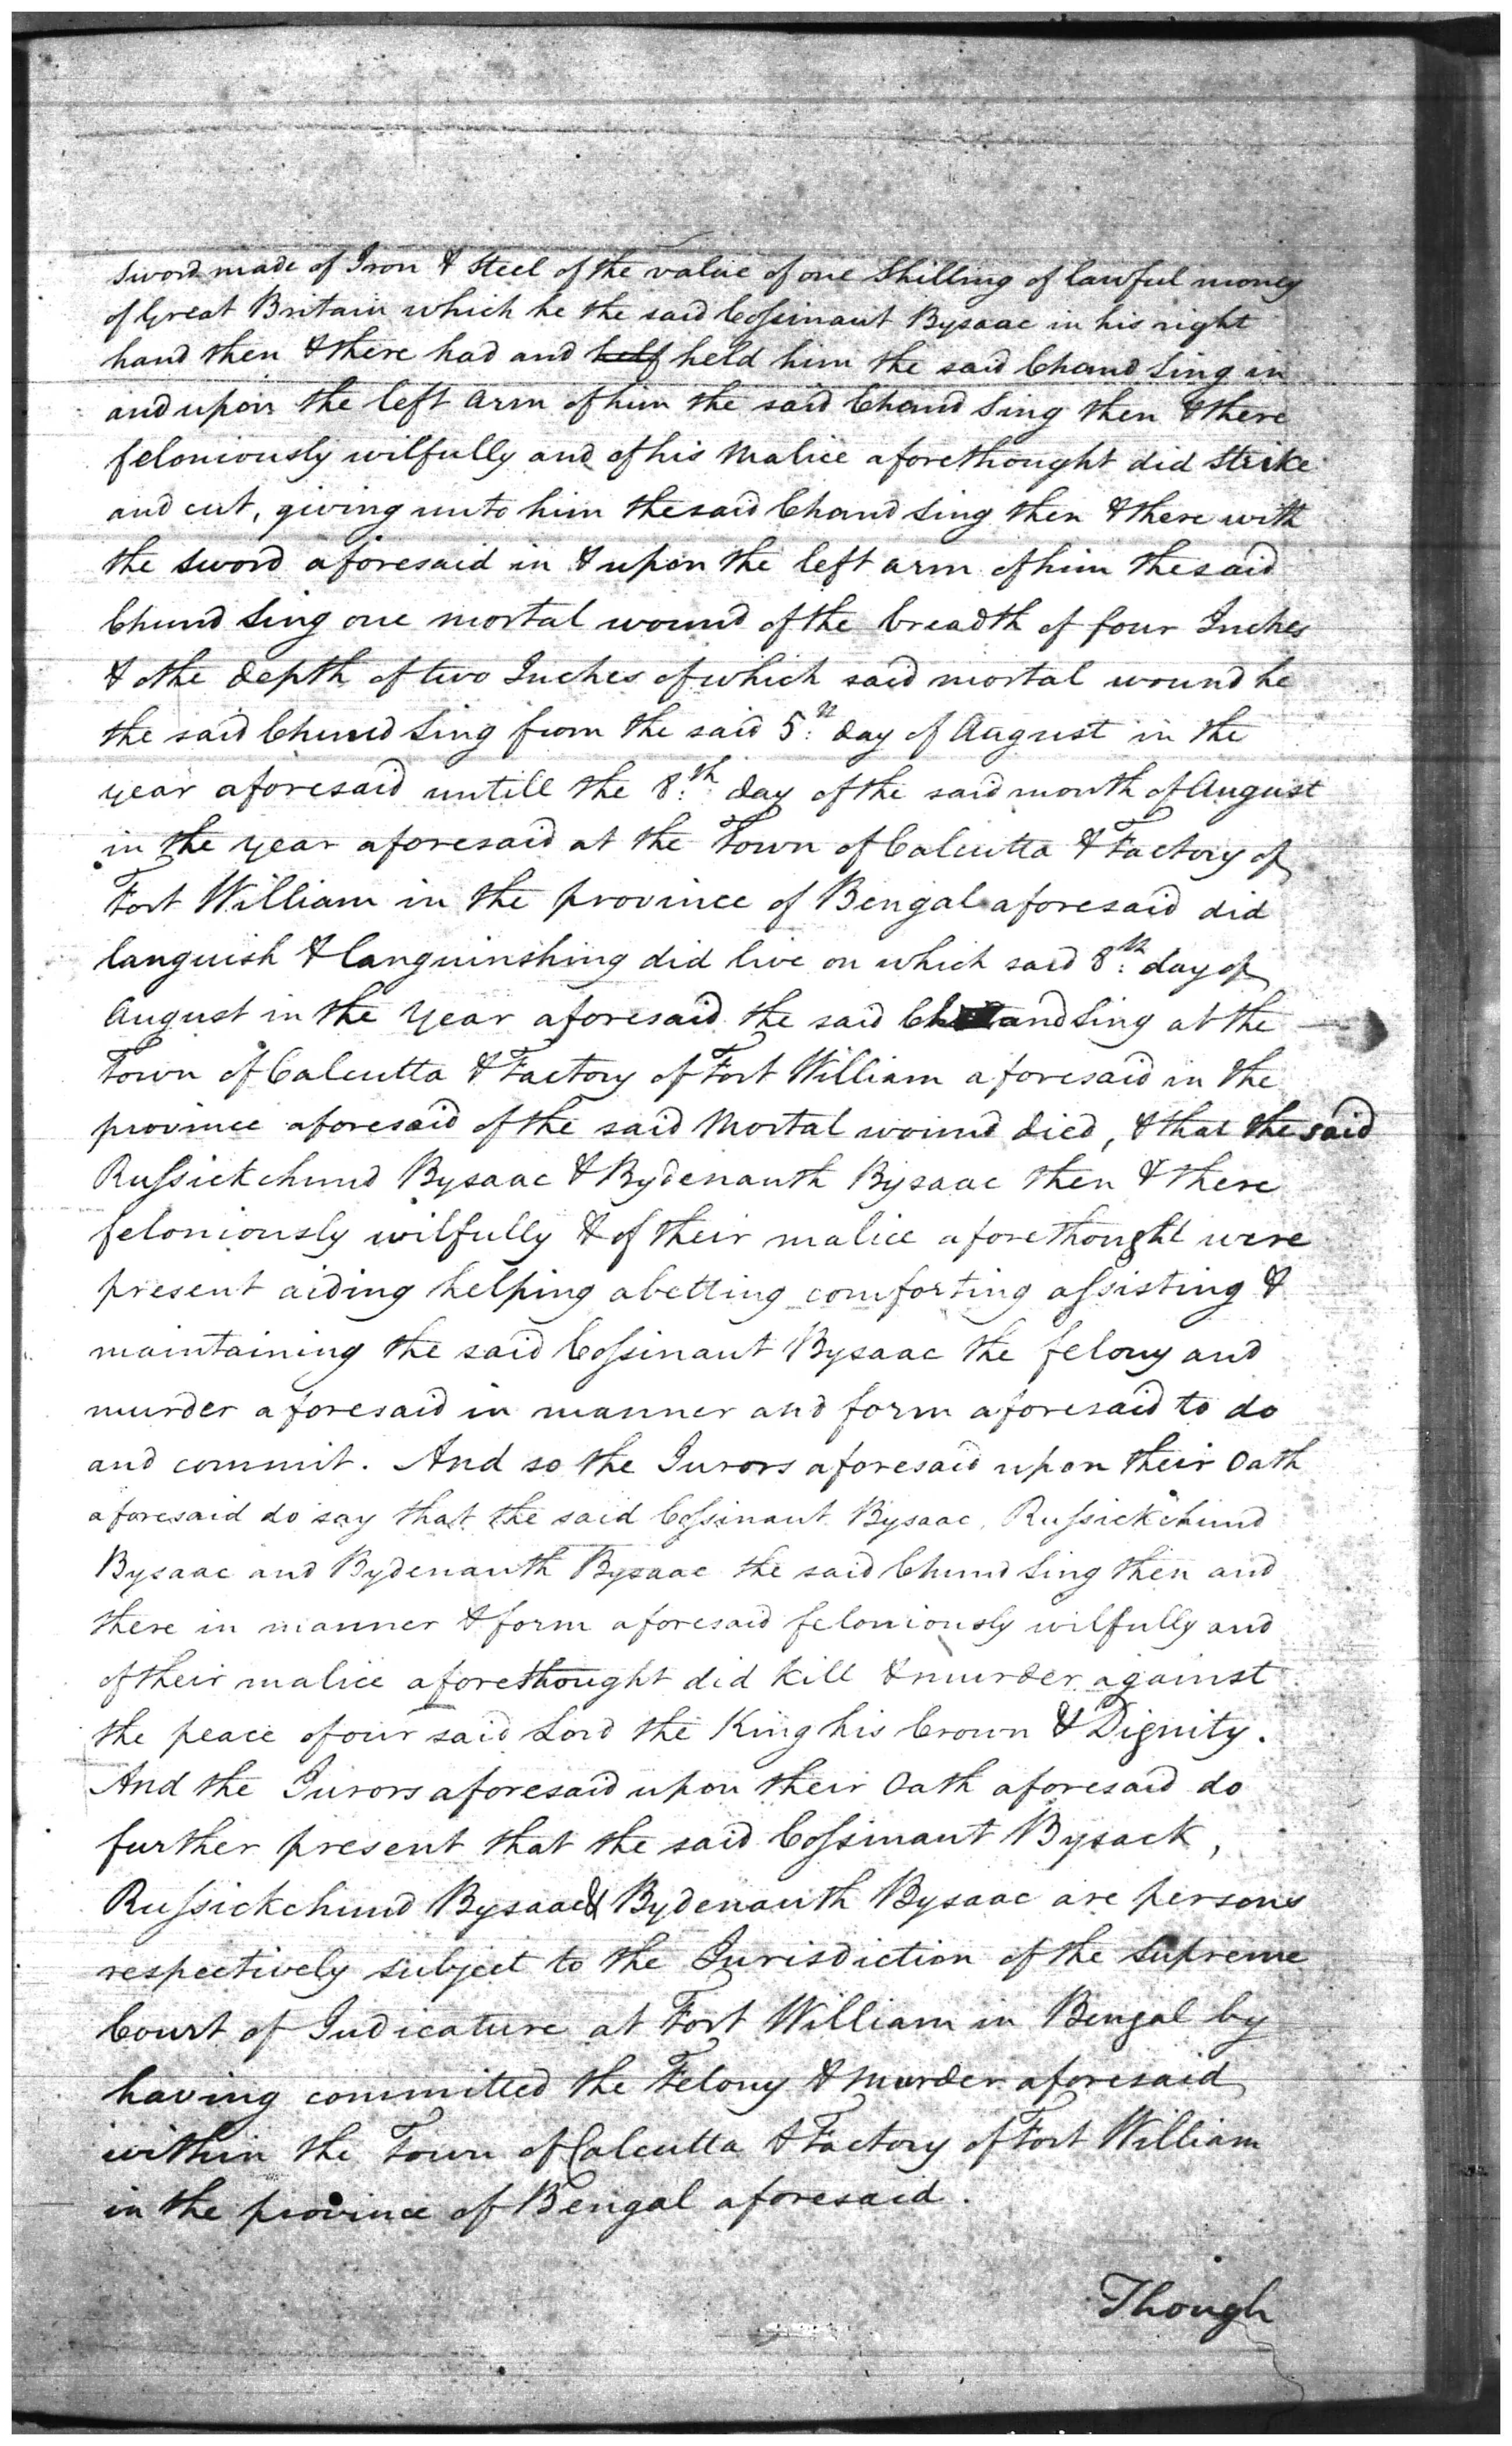 Sword made of Iron & Steel of the value of one Shilling of lawful money
of Great Britain which he the said Coſsinaut Bysaac in his right
hand then & there had and helf held him the said Chand Sing in
and upon the left arm of him the said Chand Sing then & there
feloniously wilfully and of his Malice aforethought did Strike
and cut, giving unto him the said Chand Sing then & there with
the Sword aforesaid in & upon the left arm of him the said
Chund Sing one mortal wound of the breadth of four Inches
& the depth of two Inches of which said mortal wound he
the said Chund Sing from the said 5th day of August in the
year aforesaid untill the 8th day of the said month of August
in the year aforesaid at the Town of Calcutta & Factory of
Fort William in the province of Bengal aforesaid did
languish & languinshing did live on which said 8th day of
August in the Year aforesaid the said Chand Sing at the
Town of Calcutta & Factory of Fort William aforesaid in the
province aforesaid of the said Mortal wound died, & that the said
Ruſsickchund Bysaac & Bydenauth Bysaac then & there
feloniously wilfully & of their malice aforethought were
present aiding helping abetting comforting aſsisting &
maintaining the said Coſsinaut Bysaac the felony and
murder aforesaid in manner and form aforesaid to do
and commit. And so the Jurors aforesaid upon their Oath
aforesaid do say that the said Coſsinaut Bysaac, Ruſsickchund
Bysaac and Bydenauth Bysaac the said Chund Sing then and
there in manner & form aforesaid feloniously wilfully and
of their malice aforethought did kill & murder against
the peace of our said Lord the King his Crown & Dignity.
And the Jurors aforesaid upon their Oath aforesaid do
further present that the said Coſsinaut Bysack,
Ruſsickchund Bysaac & Bydenauth Bysaac are persons
respectively subject to the Jurisdiction of the Supreme
Court of Judicature at Fort William in Bengal by
having committed the Felony & Murder aforesaid
within the Town of Calcutta & Factory of Fort William
in the province of Bengal aforesaid.
Though